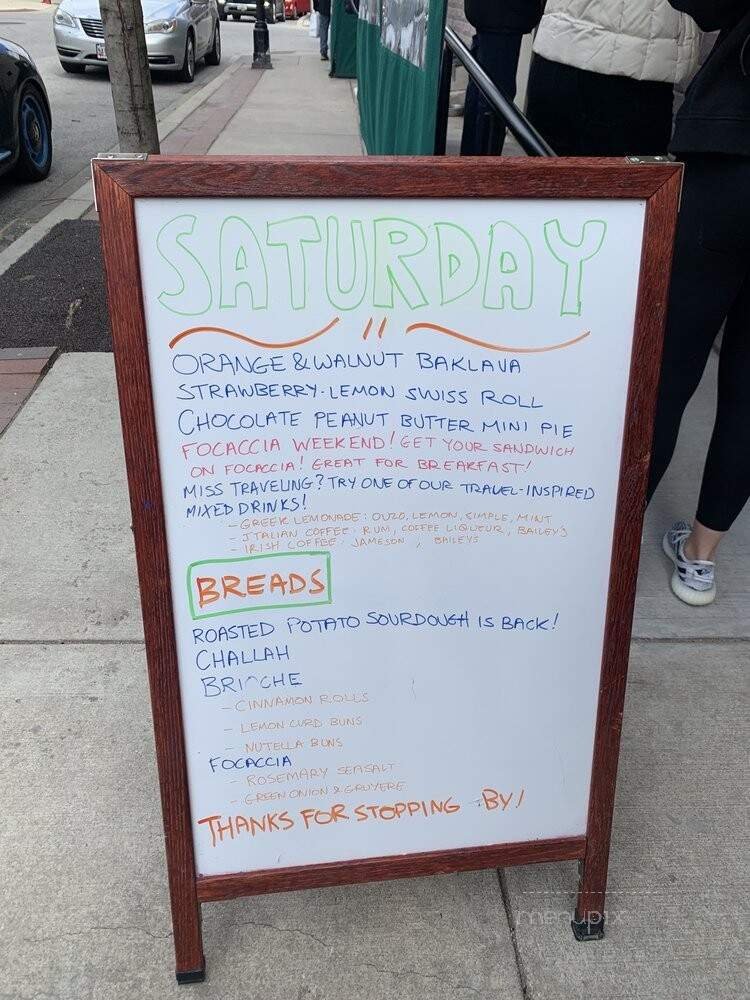 SATURDAY
ORANGE & WALNUT BAKLAVA
STRAWBERRY-LEMON SWISS ROLL
CHOCOLATE PEANUT BUTTER MINI PIE
FOCACCIA WEEKEND! GET YOUR SANDWICH
ON FOCACCIA! GREAT FOR BREAKFAST!
MISS TRAVELING? TRY ONE OF OUR TRAVEL-INSPIRED
MIXED DRINKS!
- GREEK LEMONADE: OUZO, LEMON, SIMPLE, MINT
- ITALIAN COFFEE: RUM, COFFEE LIQUEUR, BAILEY'S
- IRISH COFFEE: JAMESON, BAILEYS
BREADS
ROASTED POTATO SOURDOUGH IS BACK!
CHALLAH
BRIOCHE
- CINNAMON ROLLS
- LEMON CURD BUNS
- NUTELLA BUNS
FOCACCIA
- ROSEMARY SEASALT
- GREEN ONION & GRUYERE
THANKS FOR STOPPING BY!
menupix